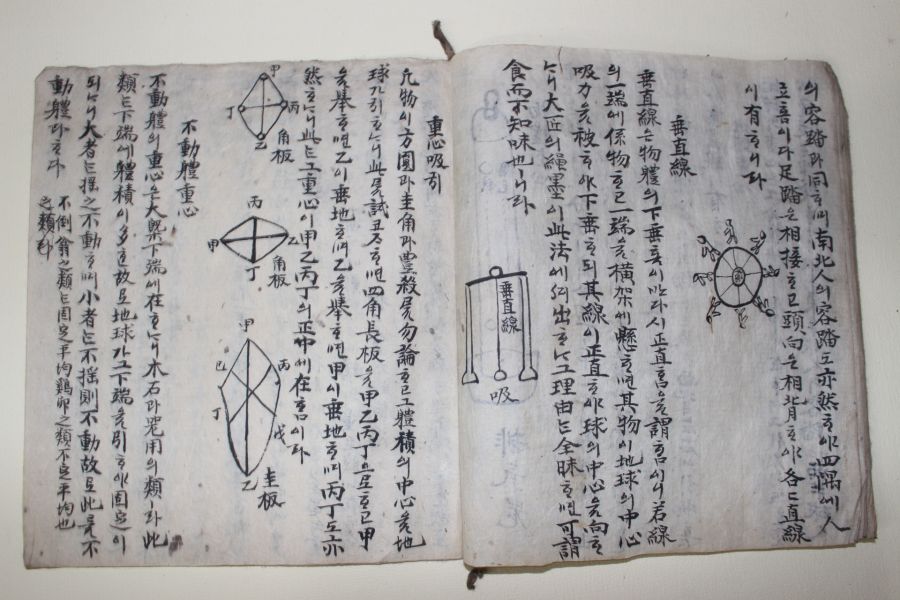 의容踏과同ᄒᆞ며南北人의容踏도亦然ᄒᆞ야四隅에人
立흠이다足踏은相接ᄒᆞ고頭向은相背ᄒᆞ야各各直線
이有ᄒᆞ니라
垂直線
垂直線은物體의下垂흠이반다시正直흠을謂흠이니若線
의一端에係物ᄒᆞ고一端을橫架에懸ᄒᆞ면其物이地球의中心
吸力을被ᄒᆞ야下垂ᄒᆞ되其線이正直ᄒᆞ야球의中心을向ᄒᆞ
ᄂᆞ니大匠의繩墨이此法에셔出ᄒᆞᄂᆞ그理由는全昧ᄒᆞ면可謂
食而不知味也ㅣ니라
垂直線
吸
重心吸引
凢物이方圓과圭角과豊殺을勿論ᄒᆞ고그體積의中心을地
球가引ᄒᆞᄂᆞ니此를試코자ᄒᆞ면四角長板을甲乙丙丁으로ᄒᆞ고甲
을擧ᄒᆞ면乙이垂地ᄒᆞ며乙을擧ᄒᆞ면甲이垂地ᄒᆞ며丙丁도亦
然ᄒᆞᄂᆞ니此는그重心이甲乙丙丁의正中에在흠이라
甲
丙
丁
乙
角板
丙
甲
乙
丁
角板
甲
丙
己
丁
戊
乙
圭板
不動體重心
不動體의重心은大槩下端에在ᄒᆞ니木石과器用의類ㅣ라此
類는下端에體積이多ᄒᆞᆫ故로地球가그下端을引ᄒᆞ야固定이
되ᄂᆞ니大者는搖之不動ᄒᆞ며小者는不搖則不動故로此를不
動體라ᄒᆞ다
不倒翁之類는固定平均鷄卵之類不定平均也
之類라